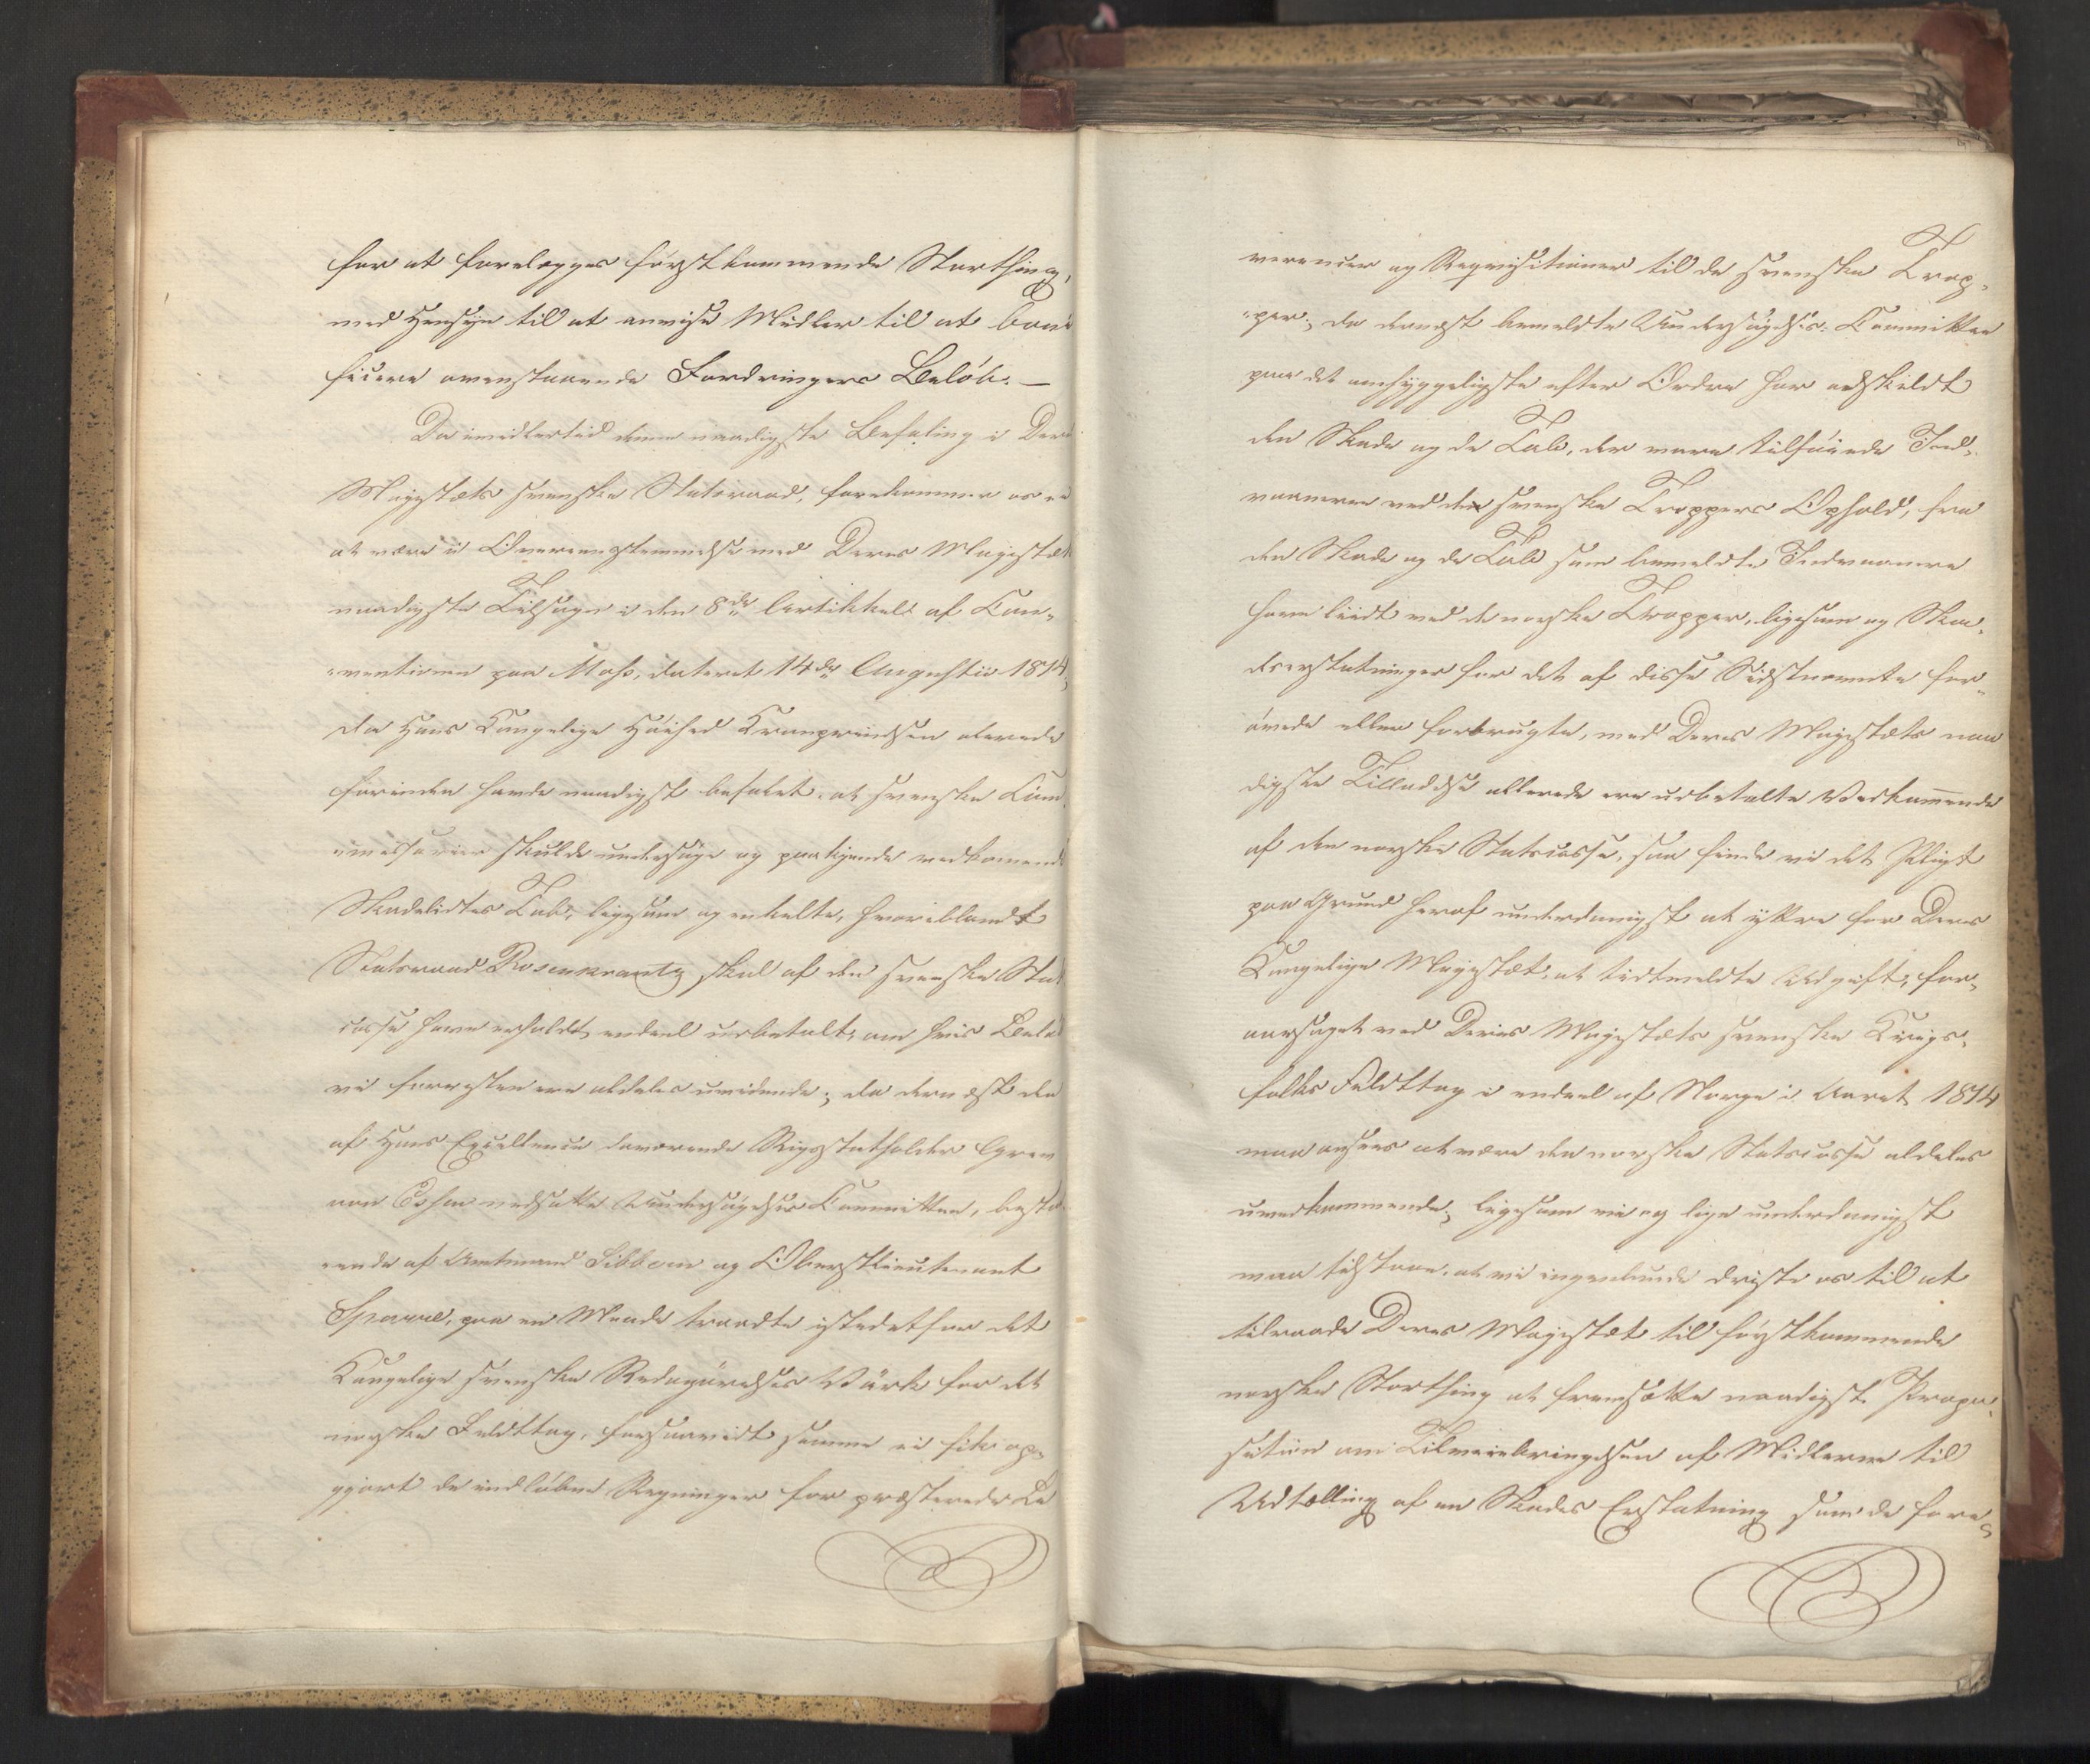 for at forelægges förstkommende Storthing,
med Hensyn til at anvise Midler til at boni
ficere ovenstaaende Fordringers Belöb. —
Da imidlertid denne naadigste Befaling i Deres
Majestæts svenske Statsraad, forekommer os ei
at være i Overeensstemmelse med Deres Majestæts
naadigste Tilsagn i den 8de Artikkel af Con-
"ventionen paa Moss, dateret 14de Augustii 1814;
da Hans Kongelige Höihed Kronprindsen allerede
forinden havde naadigst befalet, at svenske Com-
"missarier skulde undersöge og paakjende vedkommende
Skadelidtes Tab, ligesom og enkelte, hvoriblandt
Statsraad Rosenkrantz skal af den svenske Stats
casse have erholdt endeel udbetalt, om hvis Belöb
vi forresten ere aldeles uvidende; da dernæst den
af Hans Excellence daværende Rigsstatholder Greve
von Essen nedsatte Undersögelses Committee, bestaa-
"ende af Amtmand Sibbern og Oberstlieutenant
Sparre, paa en Maade traadte istedetfor det
Kongelige svenske Redogörelses Värk for det
norske Feldttog, forsaavidt samme ei fik op-
gjort de indlöbne Regninger for præsterede Le
verencer og Reqvisitioner til de svenske Trop-
"per; da dernæst bemeldte Undersögelses-Committee
paa det omhyggeligste efter Ordre har adskildt
den Skade og de Tab, der vare tilföiede Ind-
vaanerne ved de svenske Troppers Ophold, fra
den Skade og de Tab som bemeldte Indvaanere
have liidt ved de norske Tropper, ligesom og Ska-
deserstatninger for det af disse Sidstnævnte for-
övede eller forbrugte, med Deres Majestæts naa
digste Tilladelse allerede ere udbetalte Vedkommende
af den norske Statscasse, saa finde vi det Pligt
paa Grund heraf underdanigst at yttre for Deres
Kongelige Majestæt, at tidtmeldte Udgift, for-
aarsaget ved Deres Majestæts svenske Krigs-
folks Feldttog i endeel af Norge i Aaret 1814
maa ansees at være den norske Statscasse aldeles
uvedkommende; ligesom vi og lige underdanigst
maa tilstaae, at vi ingenlunde driste os til at
tilraade Deres Majestæt til förstkommende
norske Storthing at fremsætte naadigst Propo-
sition om Tilveiebringelsen af Midlerne til
Udtælling af en Skades Erstatning som de fore-